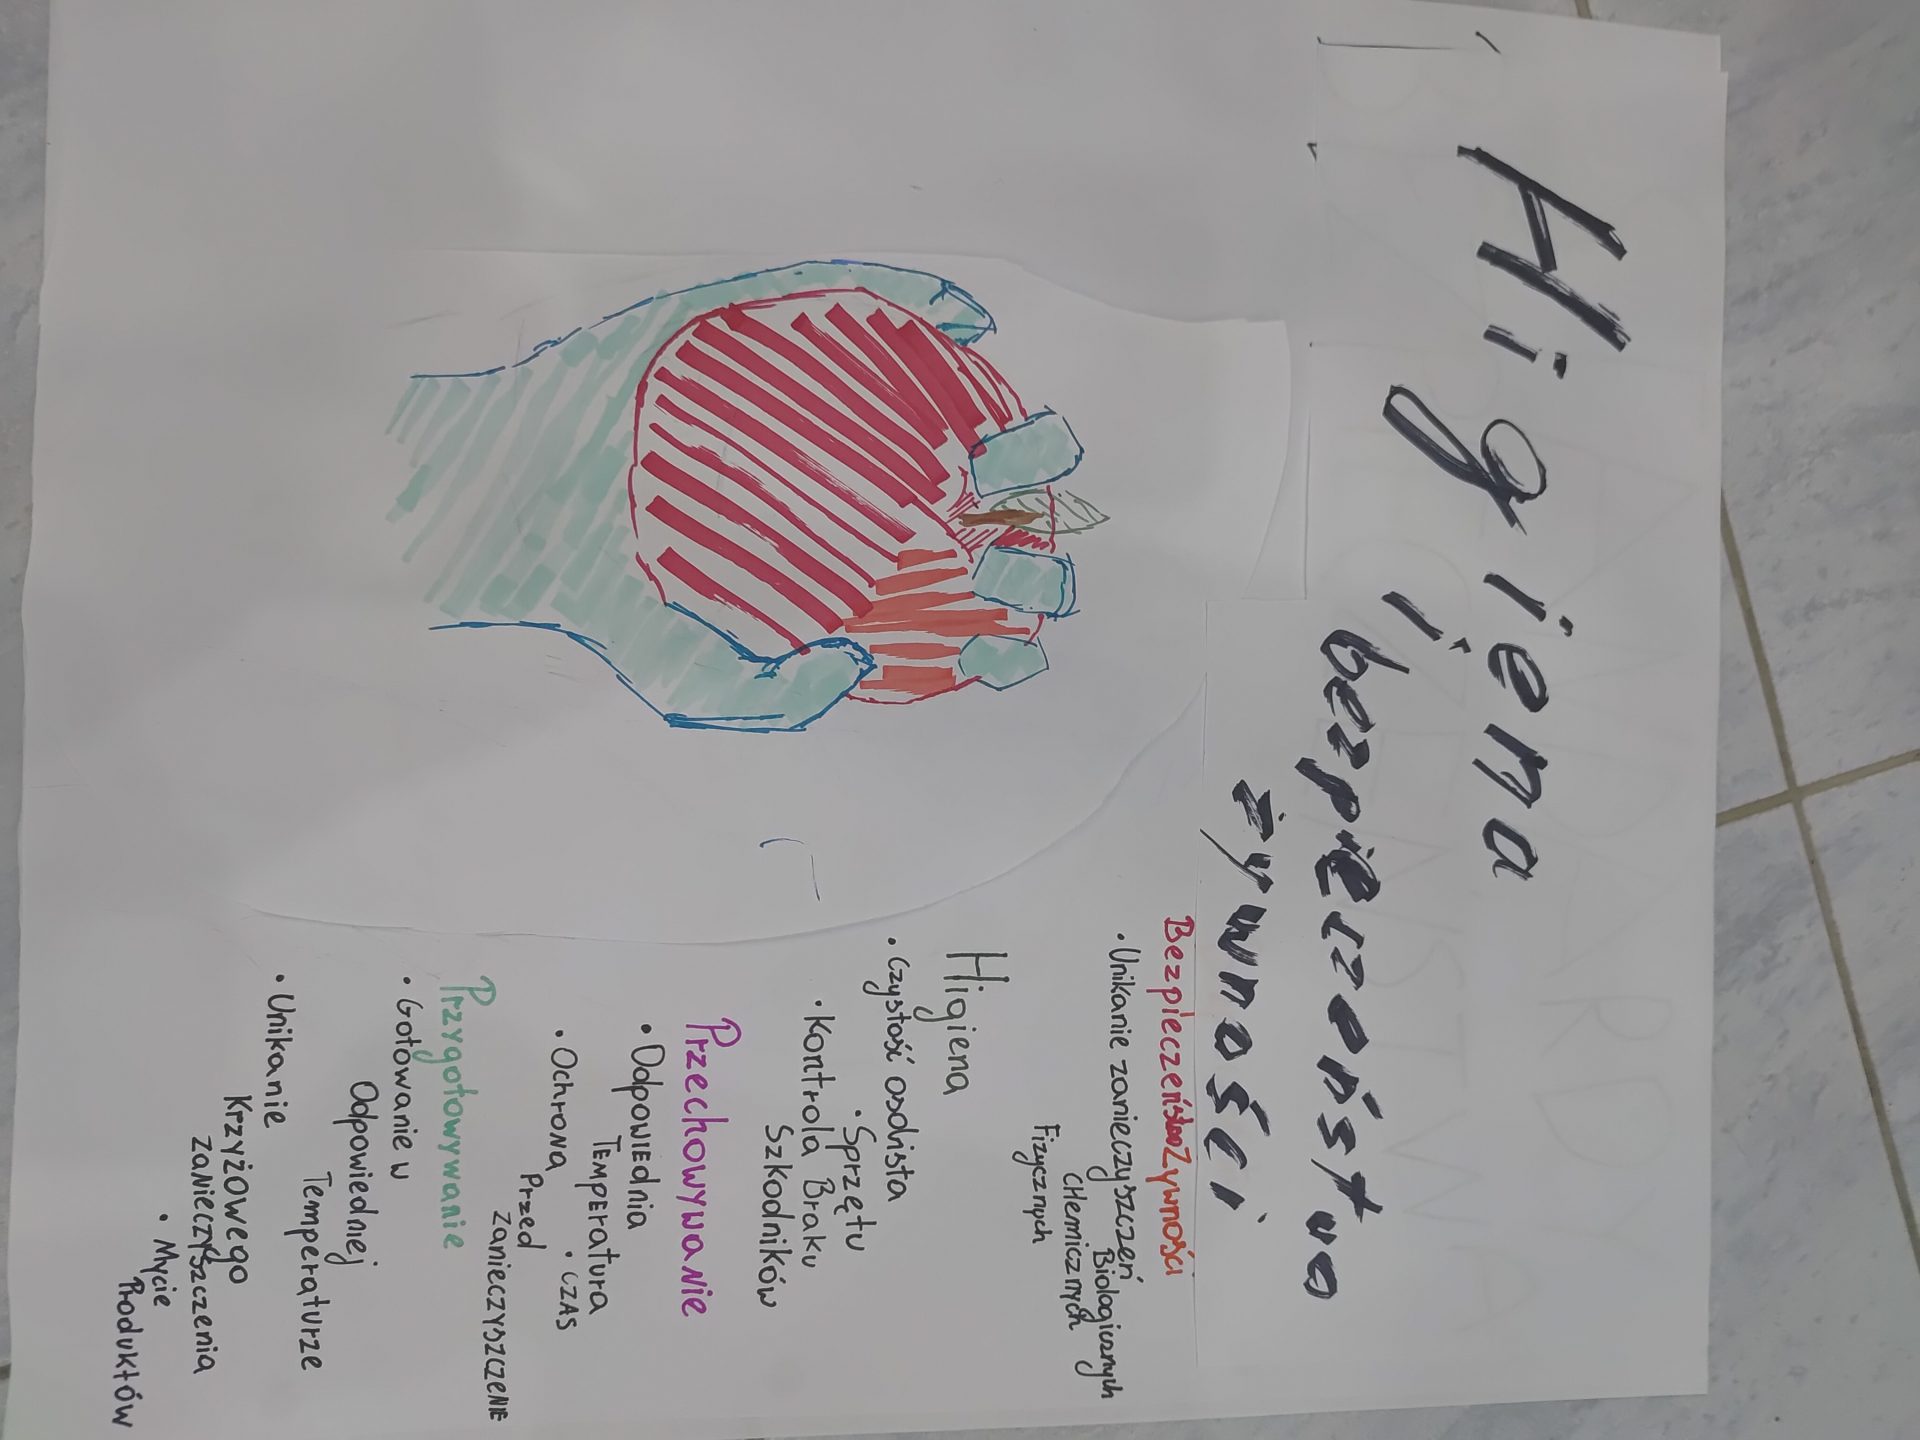 Higiena
i
bezpieczeństwo
żywności
Bezpieczeństwo Żywności
• Unikanie zanieczyszczeń
Biologicznych
CHemicznych
Fizycznych
Higiena
• Czystość osobista
• Sprzętu
• Kontrola Braku
Szkodników
Przechowywanie
• Odpowiednia
Temperatura
• CZAS
• Ochrona
Przed
Zanieczyszczenie
Przygotowywanie
• Gotowanie w
Odpowiedniej
Temperaturze
• Unikanie
Krzyżowego
Zanieczyszczenia
• Mycie
Produktów